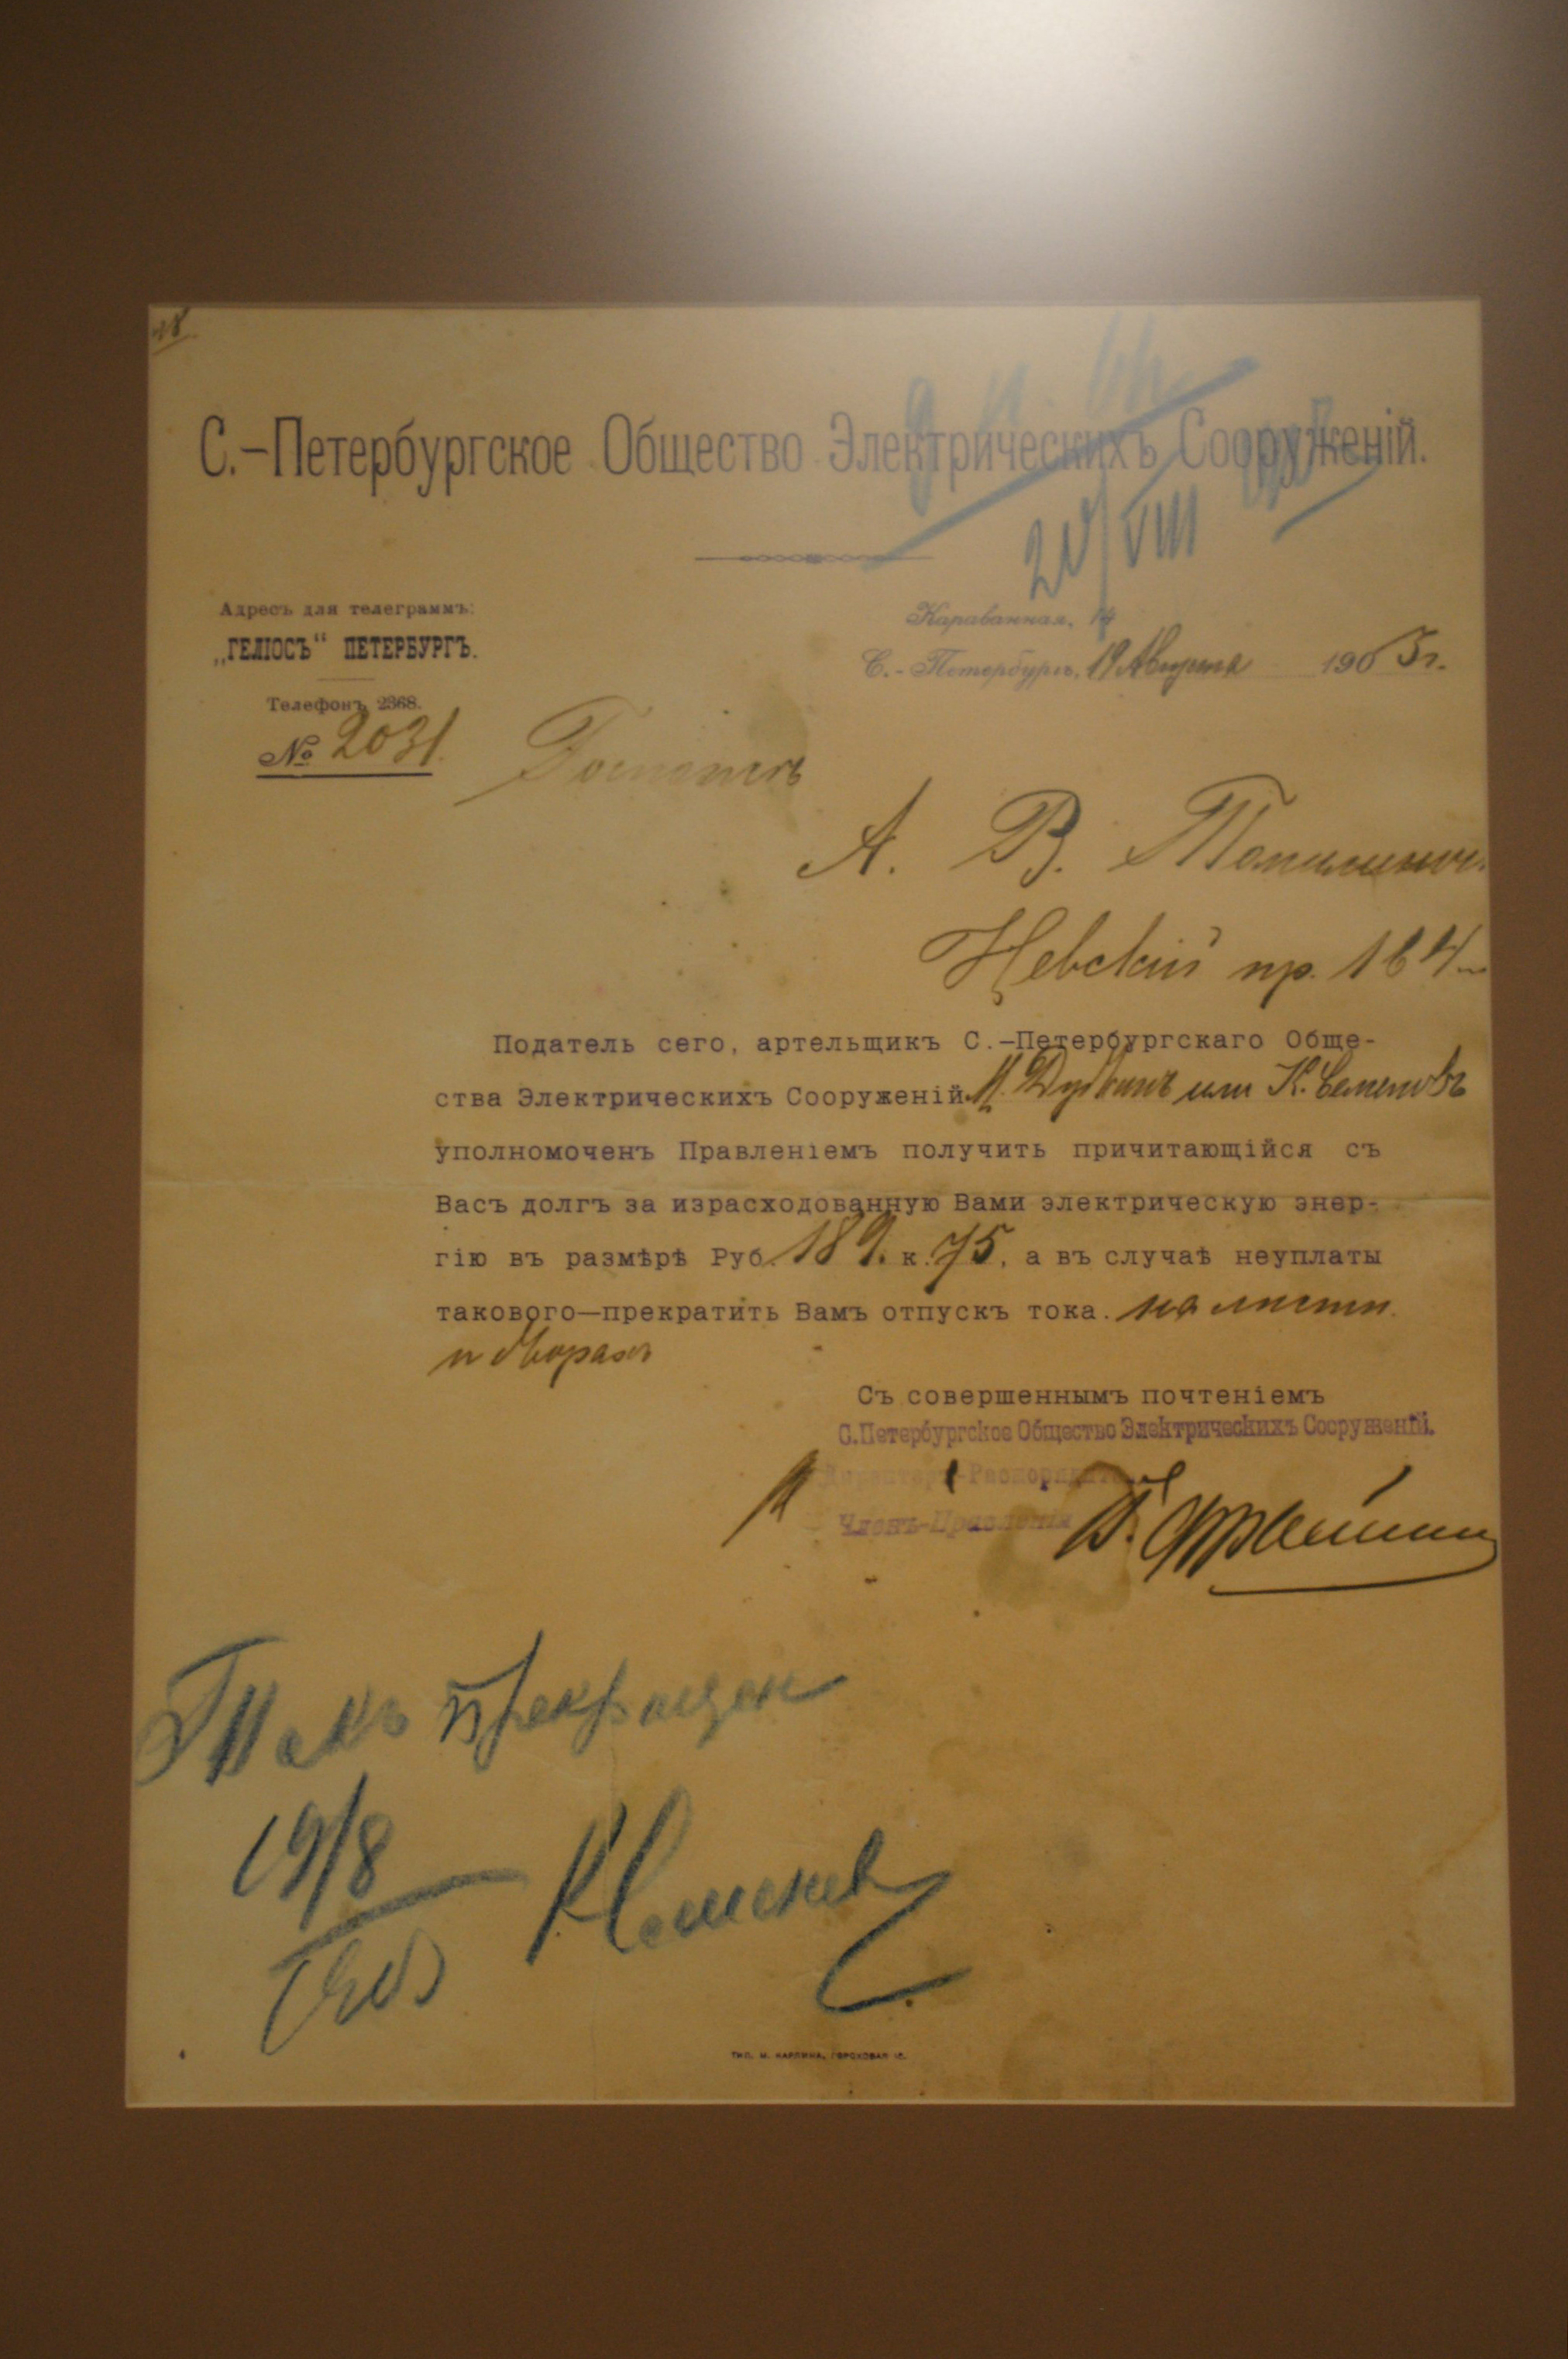 С.-Петербургское Общество Электрическихъ Сооруженій.
20/VIII
Адресъ для телеграммъ:
„ГЕЛІОСЪ“ ПЕТЕРБУРГЪ.
Телефонъ 2368.
№ 2031
Караванная, 14
С.-Петербургъ, 19 Августа 1905 г.
А. В.
Невскій пр. 164
Податель сего, артельщикъ С.-Петербургскаго Обще-
ства Электрическихъ Сооруженій или К. Семеновъ
уполномоченъ Правленіемъ получить причитающійся съ
Васъ долгъ за израсходованную Вами электрическую энер-
гію въ размѣрѣ Руб. 189. к. 75, а въ случаѣ неуплаты
такового—прекратить Вамъ отпускъ тока.
Съ совершеннымъ почтеніемъ
С.Петербургское Общество Электрическихъ Сооруженій.
Директоръ-Распорядитель
Членъ-Правленія
Токъ прекращен
19/8
1905
КСеменов
ТИП. М. КАРЛИНА, ГОРОХОВАЯ